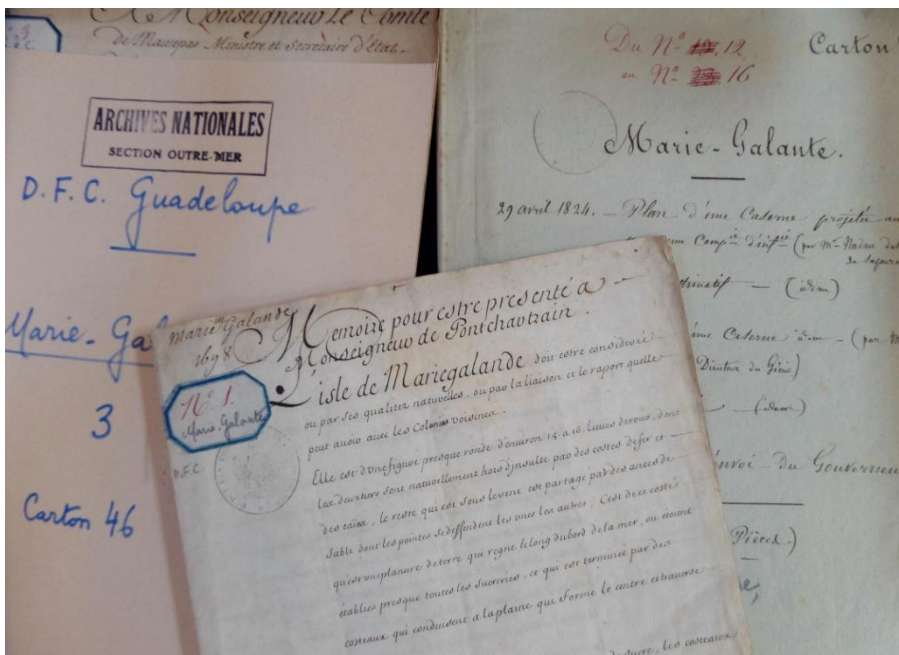 A Monseigneur Le Comte
de Maurepas Ministre et Secretaire d'Etat.
ARCHIVES NATIONALES
SECTION OUTRE-MER
D.F.C. Guadeloupe
Marie-Ga
3
Carton 46
Du Nº 12
au Nº 16
Carton
Marie-Galante.
29 avril 1824. — Plan d'une Caserne projetée
(idem)
une Caserne idem — (par
Directeur du Génie)
— (idem)
envoi Du Gouverneur
Pièces.)
marie Galande
1698
Nº 1.
Marie-Galante
D.F.C.
Memoire pour estre presenté a
Monseigneur de Pontchartrain.
L'isle de Mariegalande doit estre considerée
ou par ses qualitez naturelles, ou par la liaison et le raport quelle
peut avoir avec les Colonies voisines.
Elle est d'une figure presque ronde d'environ 15 a 16 lieues de tour, dont
les deux tiers sont naturellement hors d'insulte par des costes de fer et
des caïes, le reste qui est sous le vent est partagé par des ances de
sable dont les pointes se deffendent les unes les autres, C'est de ce costé
qu'est une planure de terre qui regne le long du bord de la mer, ou étoient
établies presque toutes les sucreries, et qui est terminée par des
costeaux qui conduisent a la plaine qui forme le centre et traverse
de sucre, les costeaux